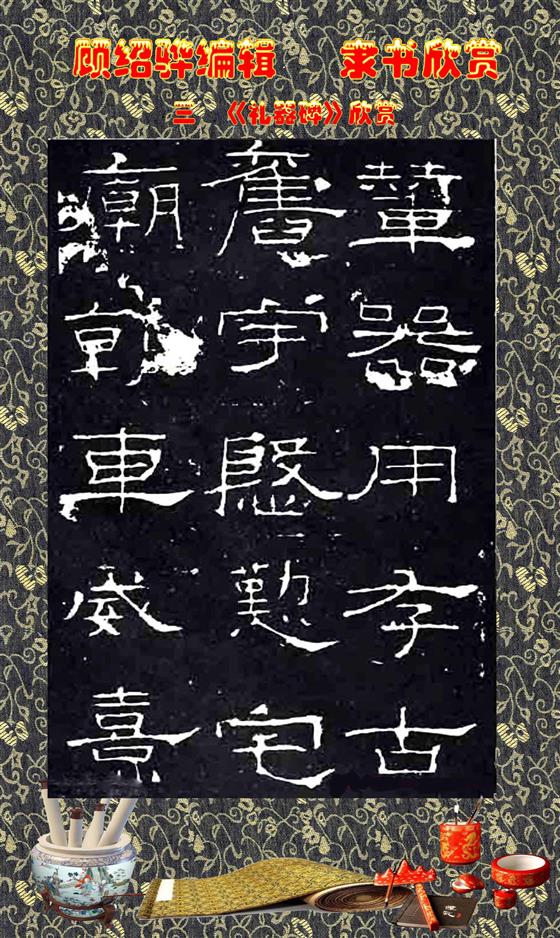 顾绍骅编辑 隶书欣赏
三 《礼器碑》欣赏
輦器用存古
舊宇慇懃宅
廟朝車威熹